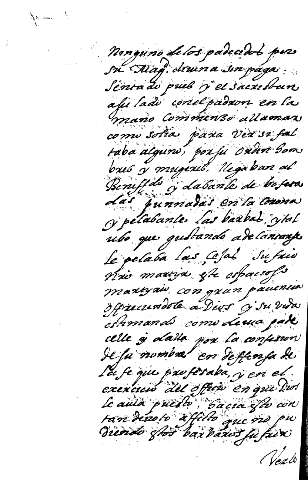 ninguno de los padecedos pero
su Mag.d
sentado pues y el sacristan
a su lado con el padron en la
mano comenso a llamar
como solia para ver si fal
taba alguno, por su orden hom
bres y mugeres. llegaban al
y dabanle de bofeta
das, puñadas en la corona
y pelabanle las barbas, y tal
ubo que gustando adelantarse
le pelaba las cejas. Sufrio
este espacioso
martyrio con gran paciencia
ofreciendole a Dios y su vida
estimando como decia pade
celle y dalla por la confesion
de su nombre en deffensa de
la fe que profesaba, y en el
exercicio del officio en que Dios
le avia puesto hacia esto con
tan devoto affecto que no pu
diendo estos barbaros sufrir